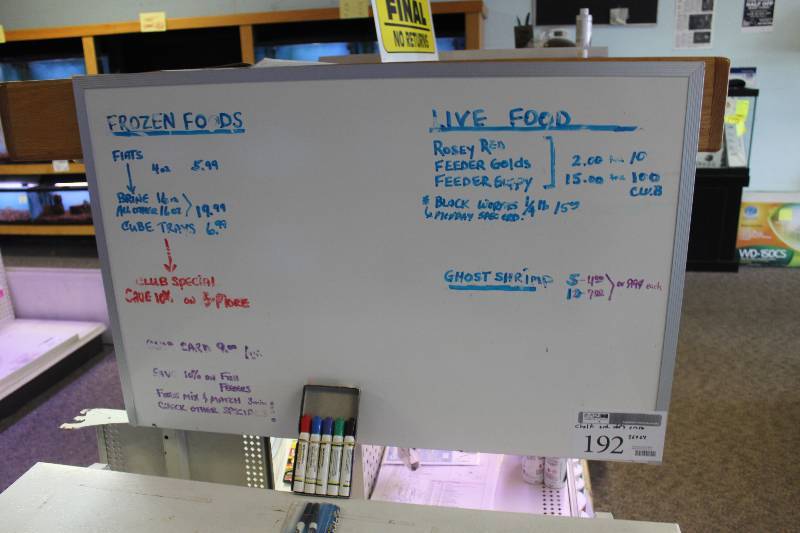 FINAL
NO RETURNS
FROZEN FOODS
FLATS
4oz 5.99
BRINE 16oz
ALL OTHER 16oz 19.99
CUBE TRAYS 6.99
CLUB SPECIAL
SAVE 10% on 3-MORE
CARD 9.00
SAVE 10% on FISH
FEEDERS
FOODS MIX & MATCH
CHECK OTHER SPECIALS
LIVE FOOD
ROSEY RED
FEEDER GOLDS 2.00 for 10
FEEDER GUPPY 15.00 for 100
CLUB
* BLACK WORMS 1/4 lb 15.00
GHOST SHRIMP 5-4.00
12-7.00 or .99¢ each
192
WD-150CS